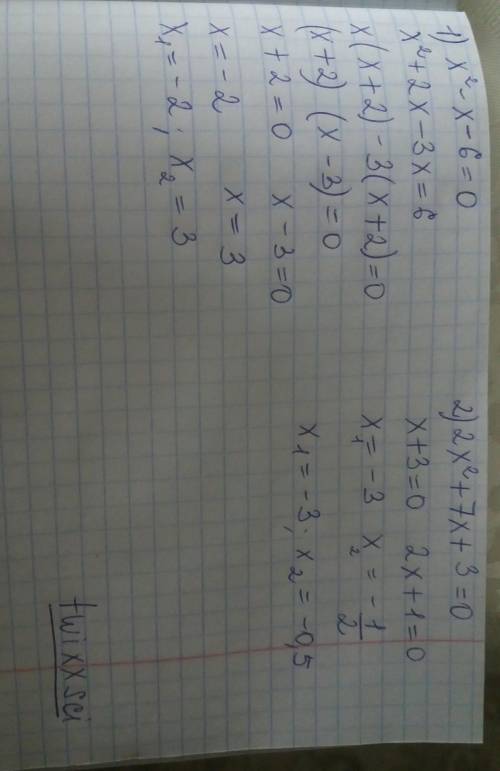 1) x² - x - 6 = 0
x² + 2x - 3x = 6
x(x+2) - 3(x+2) = 0
(x+2) (x - 3) = 0
x + 2 = 0 x - 3 = 0
x = - 2 x = 3
x₁ = - 2; x₂ = 3
2) 2x² + 7x + 3 = 0
x + 3 = 0 2x + 1 = 0
x₁ = - 3 x₂ = - 1/2
x₁ = - 3; x₂ = -0,5
twixxsci